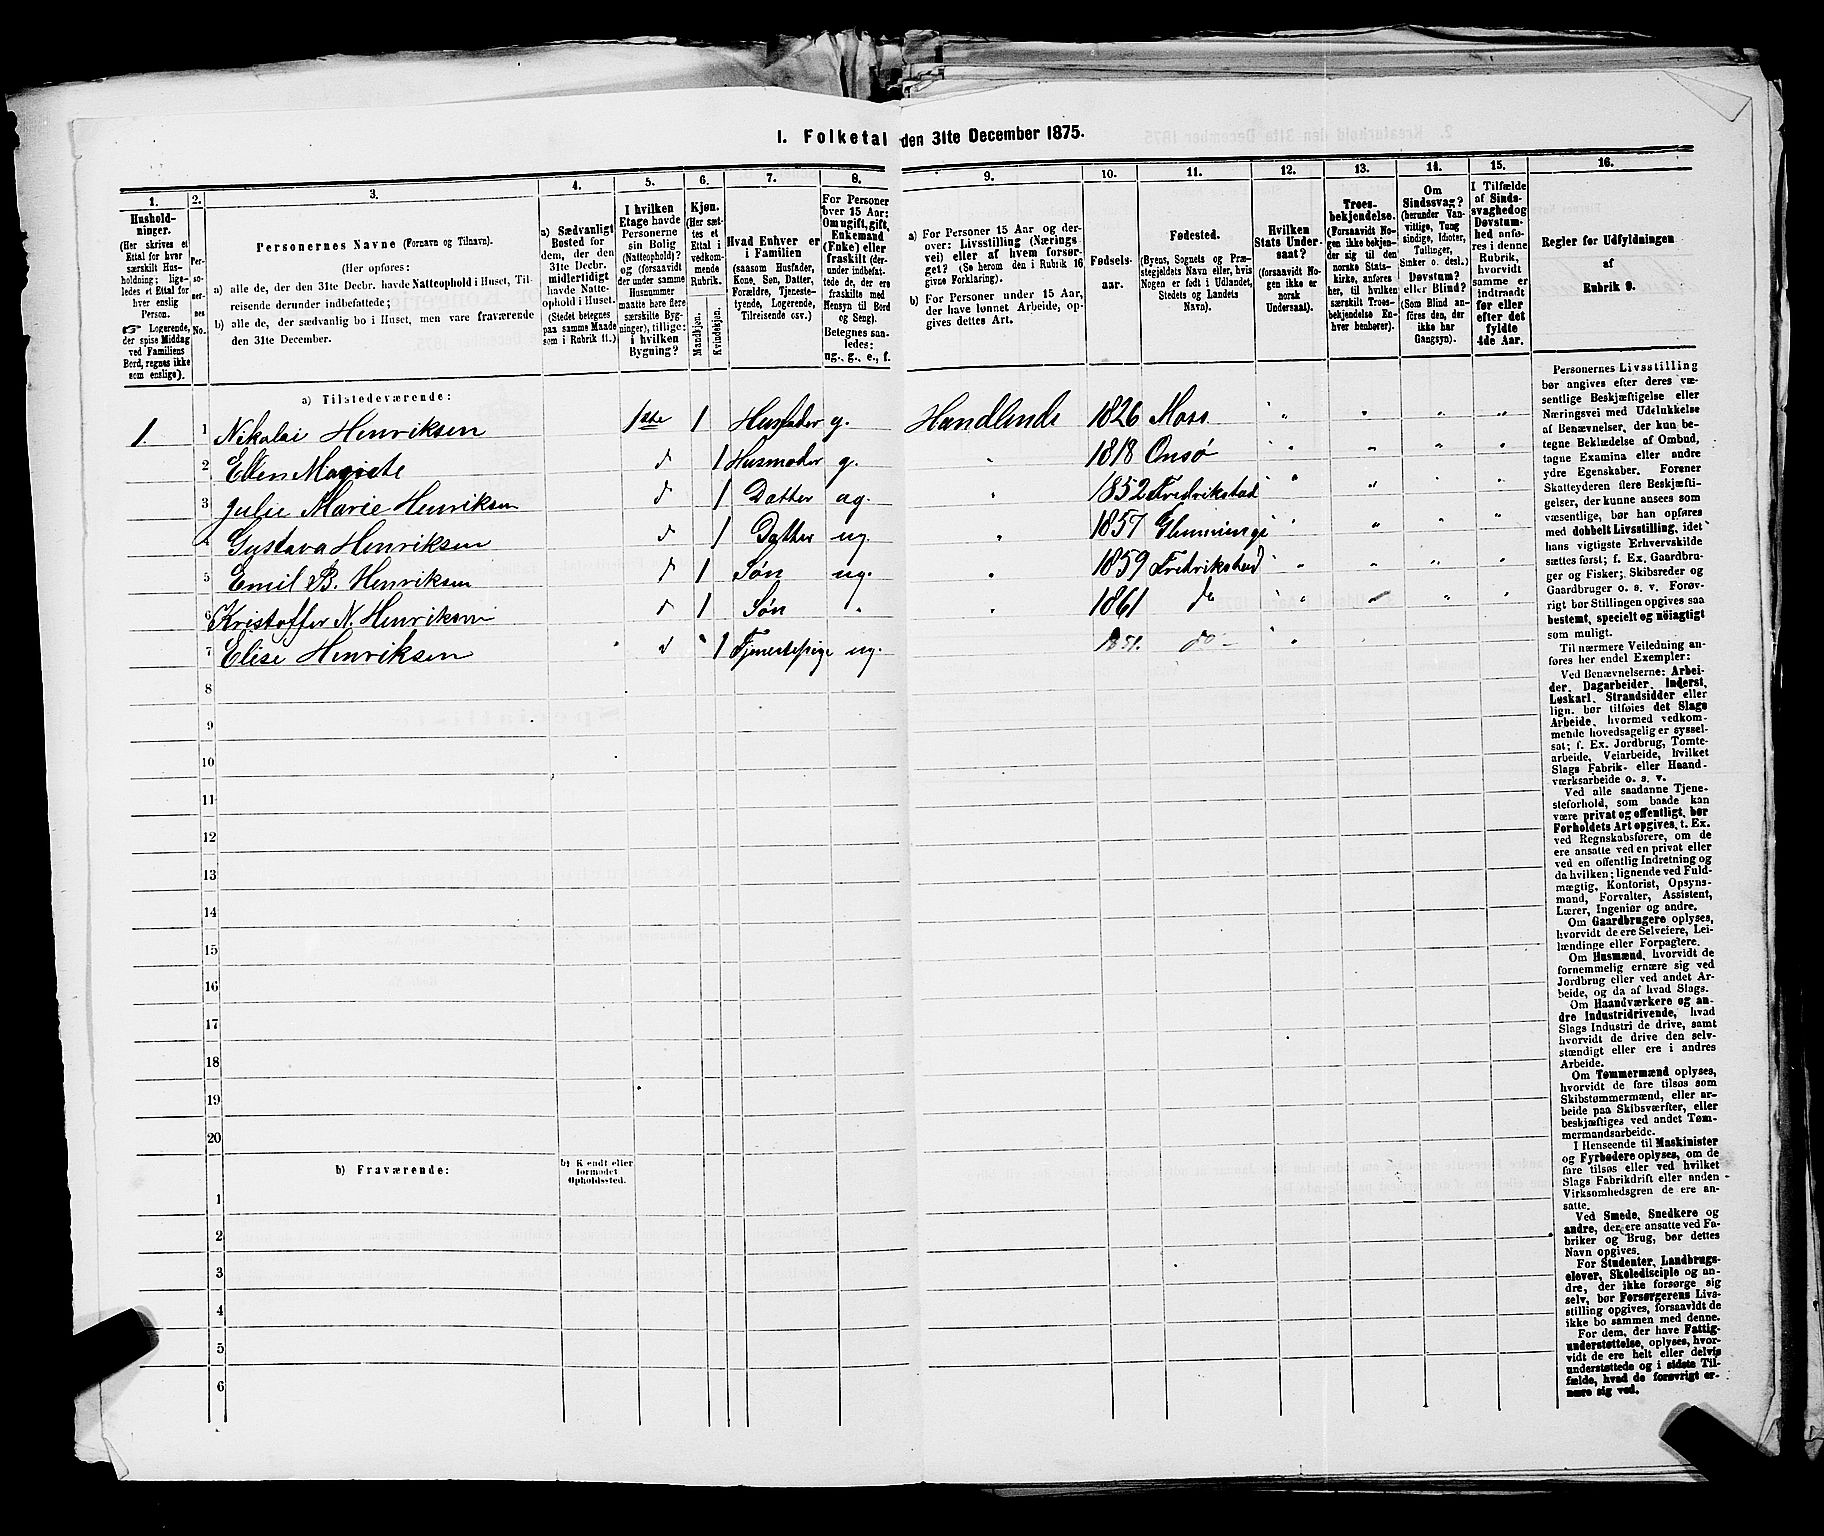 I. Folketal den 31te December 1875.
1.
Hushold-
ninger.
(Her skrives et
Ettal for hver
særskilt Hus-
holdning; lige-
ledes et Ettal for
hver enslig
Person.
☞ Logerende,
der spise Middag
ved Familiens
Bord, regnes ikke
som enslige).
2.
Per-
so-
ner-
nes
No.
3.
Personernes Navne (Fornavn og Tilnavn).
(Her opføres:
a) alle de, der den 31te Decbr. havde Natteophold i Huset, Til-
reisende derunder indbefattede;
b) alle de, der sædvanlig bo i Huset, men vare fraværende
den 31te December.
4.
a) Sædvanligt
Bosted for
dem, der den
31te Decbr.
midlertidigt
havde Natte-
ophold i Huset.
(Stedet betegnes
paa samme Maade
som i Rubrik 11.)
5.
I hvilken
Etage havde
Personerne
sin Bolig
(Natteophold)?
og (forsaavidt
der under samme
Husnummer
maatte bære flere
særskilte Byg-
ninger), tillige:
i hvilken
Bygning?
6.
Kjøn.
(Her sæt-
tes et
Ettal i
vedkom-
mende
Rubrik.
Mandkjøn.
Kvindekjøn.
7.
Hvad Enhver er
i Familien
(saasom Husfader,
Kone, Søn, Datter,
Forældre, Tjeneste-
tyende, Logerende,
Tilreisende osv.)
8.
For Personer
over 15 Aar:
Om ugift, gift,
Enkemand
(Enke) eller
fraskilt (der-
under indbefat-
tede de, der ere
fraskilte med
Hensyn til Bord
og Seng).
Betegnes saa-
ledes:
ug., g., e., f.
9.
a) For Personer 15 Aar og der-
over: Livsstilling (Nærings
vei) eller af hvem forsør-
get? (Se herom den i Rubrik 16
givne Forklaring).
b) For Personer under 15 Aar,
der have lønnet Arbeide, op-
gives dettes Art.
10.
Fødsels-
aar.
11.
Fødested.
(Byens, Sognets og Præ-
stegjeldets Navn eller, hvis
Nogen er født i Udlandet,
Stedets og Landets
Navn).
12.
Hvilken
Stats Under-
saat?
(forsaavidt No-
gen ikke er
norsk
Undersaat).
13.
Troes-
bekjendelse.
(Forsaavidt No-
gen ikke bekjen-
der sig til den
norske Stats-
kirke, anføres
her, til hvilken
særskilt Troes-
bekjendelse En-
hver henhører).
14.
Om
Sindssvag?
(herunder Van-
vittige, Tung
sindige, Idioter,
Tullinger,
Sinker o. desl.)
Døvstum?
eller Blind?
(Som Blind an-
føres den, der
ikke har
Gangsyn).
15.
I Tilfælde
af Sinds-
svaghed og
Døvstum-
hed anfø-
res i denne
Rubrik,
hvorvidt
samme er
indtraadt
før eller
efter det
fyldte
4de Aar.
16.
Regler for Udfyldningen
af
Rubrik 9.
a) Tilstedeværende:
1. 1 Nikolai Henriksen 1ste 1 Husfader g. Handlende 1826 Moss " " " "
2 Ellen Magrete d 1 Husmoder g. " 1818 Onsø " " " "
3 Julie Marie Henriksen d 1 Datter ug. " 1852 Fredrikstad " " " "
4 Gustava Henriksen d 1 Datter ug. " 1857 Glemminge " " " "
5 Emil B. Henriksen d 1 Søn ug. " 1859 Fredrikstad " " " "
6 Kristoffer N. Henriksen d 1 Søn " " 1861 do " " " "
7 Elise Henriksen " d " 1 Tjenestepige ug. 1851. do - "
8
9
10
11
12
13
14
15
16
17
18
19
20
b) Fraværende:
b) Kjendt eller
formodet
Opholdssted.
1
2
3
4
5
6
Personernes Livsstilling
bør angives efter deres væ-
sentlige Beskjæftigelse eller
Næringsvei med Udelukkelse
af Benævnelser, der kun be-
tegne Beklædelse af Ombud,
tagne Examina eller andre
ydre Egenskaber. Forener
Skatteyderen flere Beskjæfti-
gelser, der kunne ansees som
væsentlige, bør han opføres
med dobbelt Livsstilling, idet
hans vigtigste Erhvervskilde
sættes først; f. Ex. Gaardbru-
ger og Fisker; Skibsreder og
Gaardbruger o. s. v. Forøv-
rigt bør Stillingen opgives saa
bestemt, specielt og nøiagtigt
som muligt.
Til nærmere Veiledning an-
føres her endel Exempler:
Ved Benævnelserne: Arbei-
der, Dagarbeider, Inderst,
Løskarl, Strandsidder eller
lign. bør tilføies det Slags
Arbeide, hvormed vedkom-
mende hovedsagelig er syssel-
sat; f. Ex. Jordbrug, Tomte-
arbeide, Veiarbeide, hvilket
Slags Fabrik- eller Haand-
værksarbeide o. s. v.
Ved alle saadanne Tjene-
steforhold, som baade kan
være privat og offentligt, bør
Forholdets Art opgives, t. Ex.
ved Regnskabsførere, om de
ere ansatte ved en privat eller
ved en offentlig Indretning og
da hvilken; lignende ved Fuld-
mægtig, Kontorist, Opsyns-
mand, Forvalter, Assistent,
Lærer, Ingeniør og andre.
Om Gaardbrugere oplyses,
hvorvidt de ere Selveiere, Lei-
lændinge eller Forpagtere.
Om Husmænd, hvorvidt de
fornemmelig ernære sig ved
Jordbrug eller ved andet Ar-
beide, og da af hvad Slags.
Om Haandværkere og an-
dre Industridrivende, hvad
Slags Industri de drive, samt
hvorvidt de drive den selv-
stændigt eller ere i andres
Arbeide.
Om Tømmermænd oplyses,
hvorvidt de fare tilsøs som
Skibstømmermænd, eller ar-
beide paa Skibsværfter, eller
beskjæftiges ved andet Tøm-
mermandsarbeide.
I Henseende til Maskinister
og Fyrbødere oplyses, om de
fare tilsøs eller ved hvilket
Slags Fabrikdrift eller anden
Virksomhedsgren de ere an-
satte.
Ved Smede, Snedkere og
andre, der ere ansatte ved Fa-
briker og Brug, bør dettes
Navn opgives.
For Studenter, Landbrugs-
elever, Skoledisciple og an-
dre, der ikke forsørge sig
selv, bør Forsørgerens Livs-
stilling opgives, forsaavidt de
ikke bo sammen med denne.
For dem, der have Fattig-
understøttelse, oplyses, hvor-
vidt de ere helt eller delvis
understøttede og i sidste Til-
fælde, hvad de forøvrigt er-
nære sig ved.